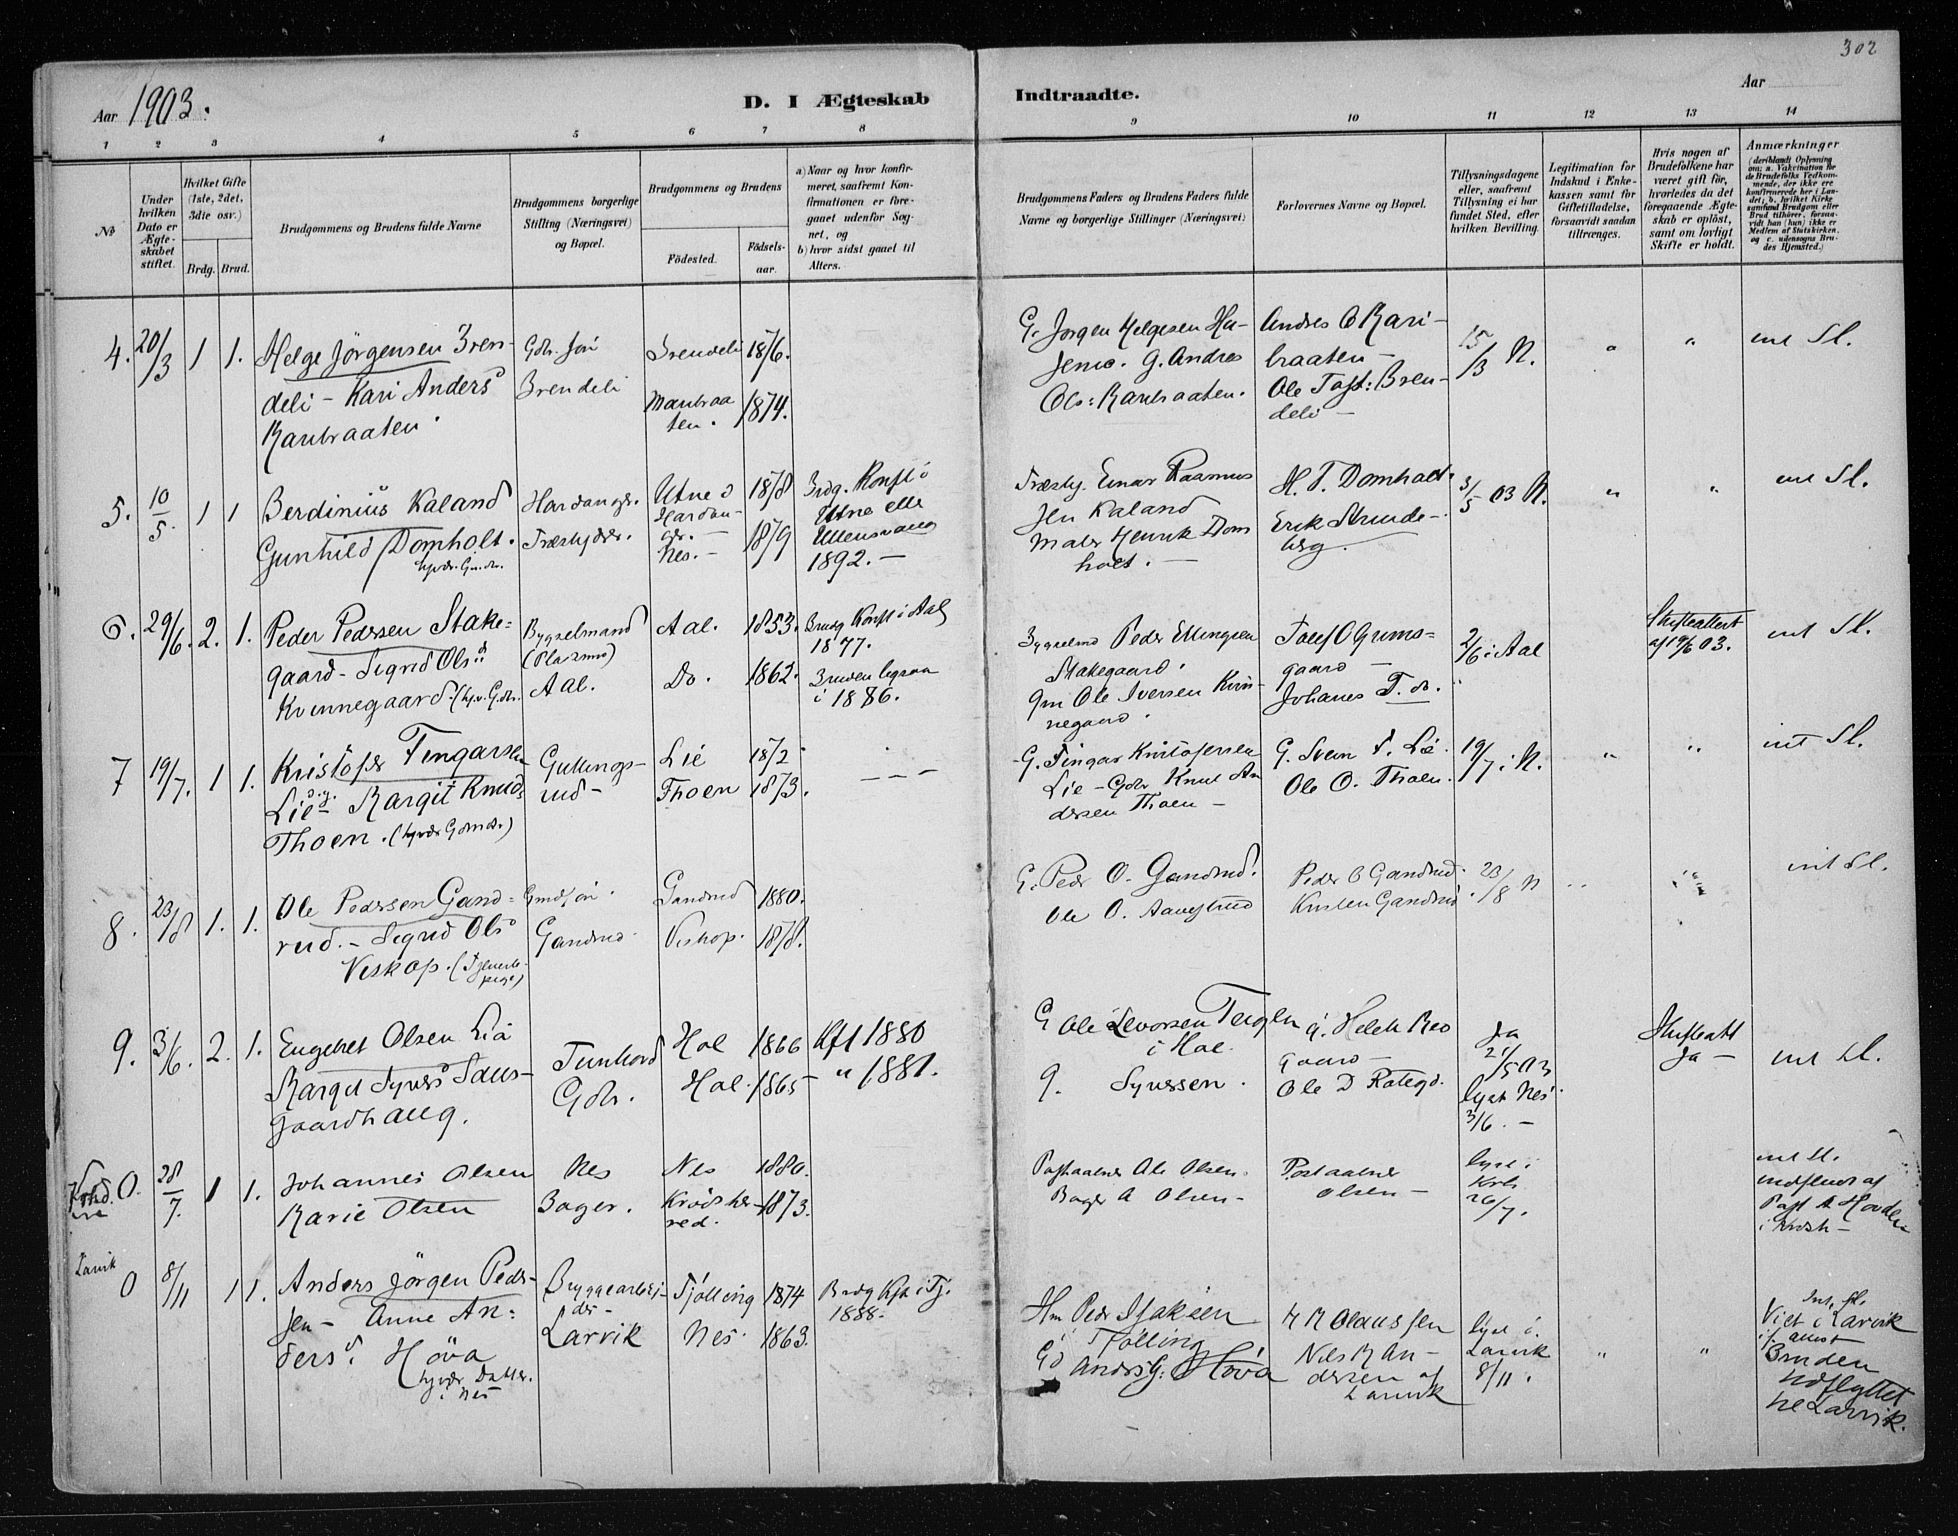 302
Aar 1903.
D. I Ægteskab
Indtraadte.
Aar
1 2 3 4 5 6 7 8
9 10 11 12 13 14
No
Under hvilken Dato er Ægteskabet stiftet.
Hvilket Gifte (1ste, 2det, 3die osv.)
Brdg. Brud.
Brudgommens og Brudens fulde Navne
Brudgommens borgerlige Stilling (Næringsvei) og Bopæl.
Brudgommens og Brudens
Födested.
Födselsaar.
a) Naar og hvor konfirmeret, saafremt Konfirmationen er foregaaet udenfor Sognet, og
b) hvor sidst gaaet til Alters.
Brudgommens Faders og Brudens Faders fulde Navne og borgerlige Stillinger (Næringsvei)
Forlovernes Navne og Bopæl.
Tillysningsdagene eller, saafremt Tillysning ei har fundet Sted, efter hvilken Bevilling.
Legitimation for Indskud i Enkekassen samt for Giftetilladelse, forsaavidt saadan tiltrænges.
Hvis nogen af Brudefolkene har været gift för, hvorledes da det foregaaende Ægteskab er oplöst, samt om lovligt Skifte er holdt.
Anmærkninger
(deriblandt Oplysning om: a. Vakcination for de Brudefolks Vedkommende, der ikke ere konfirmerede her i Landet; b. hvilket Kirkesamfund Brudgom eller Brud tilhörer, forsaavidt han (hun) ikke er Medlem af Statskirken, og c. udensogns Brudes Hjemsted.)
4. 20/3 1 1. Helge Jörgensen Bren-
deli - Kari Anders
Raubraaten.
Gbr. søn
Brendeli
Brendeli 1876.
1874.
G. Jørgen Helgesen Ha-
G. Andres
Ols: Raubraaten.
Andres O Rau-
braaten -
Ole Tost: Bren-
deli -
15/3 N. " " int Sl.
5. 10/5. 1 1 Berdinius Kaland
Gunhild Domholt.
Hardanger.
Utne i
Hardan-
ger. -
Nes. -
1878
1879
Brdg. Konft i
Utne eller
Ullensvang
1892. -
Træsky. Einar Rasmus
sen Kaland
Maler Henrik Dom
holt. -
H. T. Domholt.
Erik Strande-
berg.
3/5 03 N. " " int Sl.
6. 29/6. 2. 1. Peder Pedersen Stake-
gaard - Sigrid Olsd
Kvinnegaard.
Bygselmand
(Pladsmd)
Aal.
Aal. 1853.
Do. 1862.
Brudg Konft i Aal
1877.
Bruden ligesaa
i 1886.
Bygselmd Peder Ellingsen
Stakegaard.
Gm Ole Iversen Kvin-
negaard.
Tolef O Grims-
gaard -
Johanes T. do.
2/6 i Aal
Skifteattest
af 19/6 03.
int Sl.
7 19/7. 1 1. Kristofer Fingarsen
Lie - Margit Knuds
Thoen.
Gullings-
rud -
Lie 1872
Thoen 1873.
- - -
G. Fingar Kristofersen
Lie - Gbr Knut An
dersen Thoen -
G. Svein F. Lie.
Ole O. Thoen.
19/7 i N. " " int Sl.
8. 23/8 1. 1. Ole Pedersen Gand-
rud. - Sigrid Ols
Veskop.
Gmdsøn.
Gandrud
Gandrud 1880.
Veskop. 1878.
G. Peder O. Gandrud.
Ole O. Aavestrud
Peder O Gandrud.
Kristen Gandrud.
23/8 N " " int Sl.
9. 3/6. 2. 1. Engebret Olsen Lia
Margit Syvers Saus-
gaardhaug.
Tunhovd
Gbr.
Hol 1866
Hol. 1865 -
Kft 1880
" 1881.
G Ole Levorsen
i Hol.
g. Syversen.
G. Helek Reo
gaard -
Ole D Rotegd.
Ja
21/5 03
lyst Nes
3/6. -
Skifteatt
Ja -
int Sl.
0. 28/7. 1 1. Johannes Olsen
Marie Olsen
Nes
Bager.
Nes 1880.
Krødsher-
red. 1873.
Postaabner Ole Olsen.
Bager A Olsen -
Postaabner
Olsen -
lyst i
Krh
26/7.
int Sl.
indført af
Past A Hovden
i Krdsh -
Larvik
0 8/11 1 1. Anders Jörgen Peder-
sen - Anne An-
ders. Höva
hjvær. Datter
i Nes
Bryggearbei-
der -
Larvik
Tjölling 1874
Nes. 1863.
Brdg Kft i Tj.
1888.
Hm Peder Isaksen
Tjölling
Gd Anders G. Höva
H M Olaussen
Nils R An-
dersen af
Larvik
lyst i
Larvik
8/11.
" "
Int. Sl.
Viet i Larvik
if. attest
Bruden
udflyttet
til Larvik.